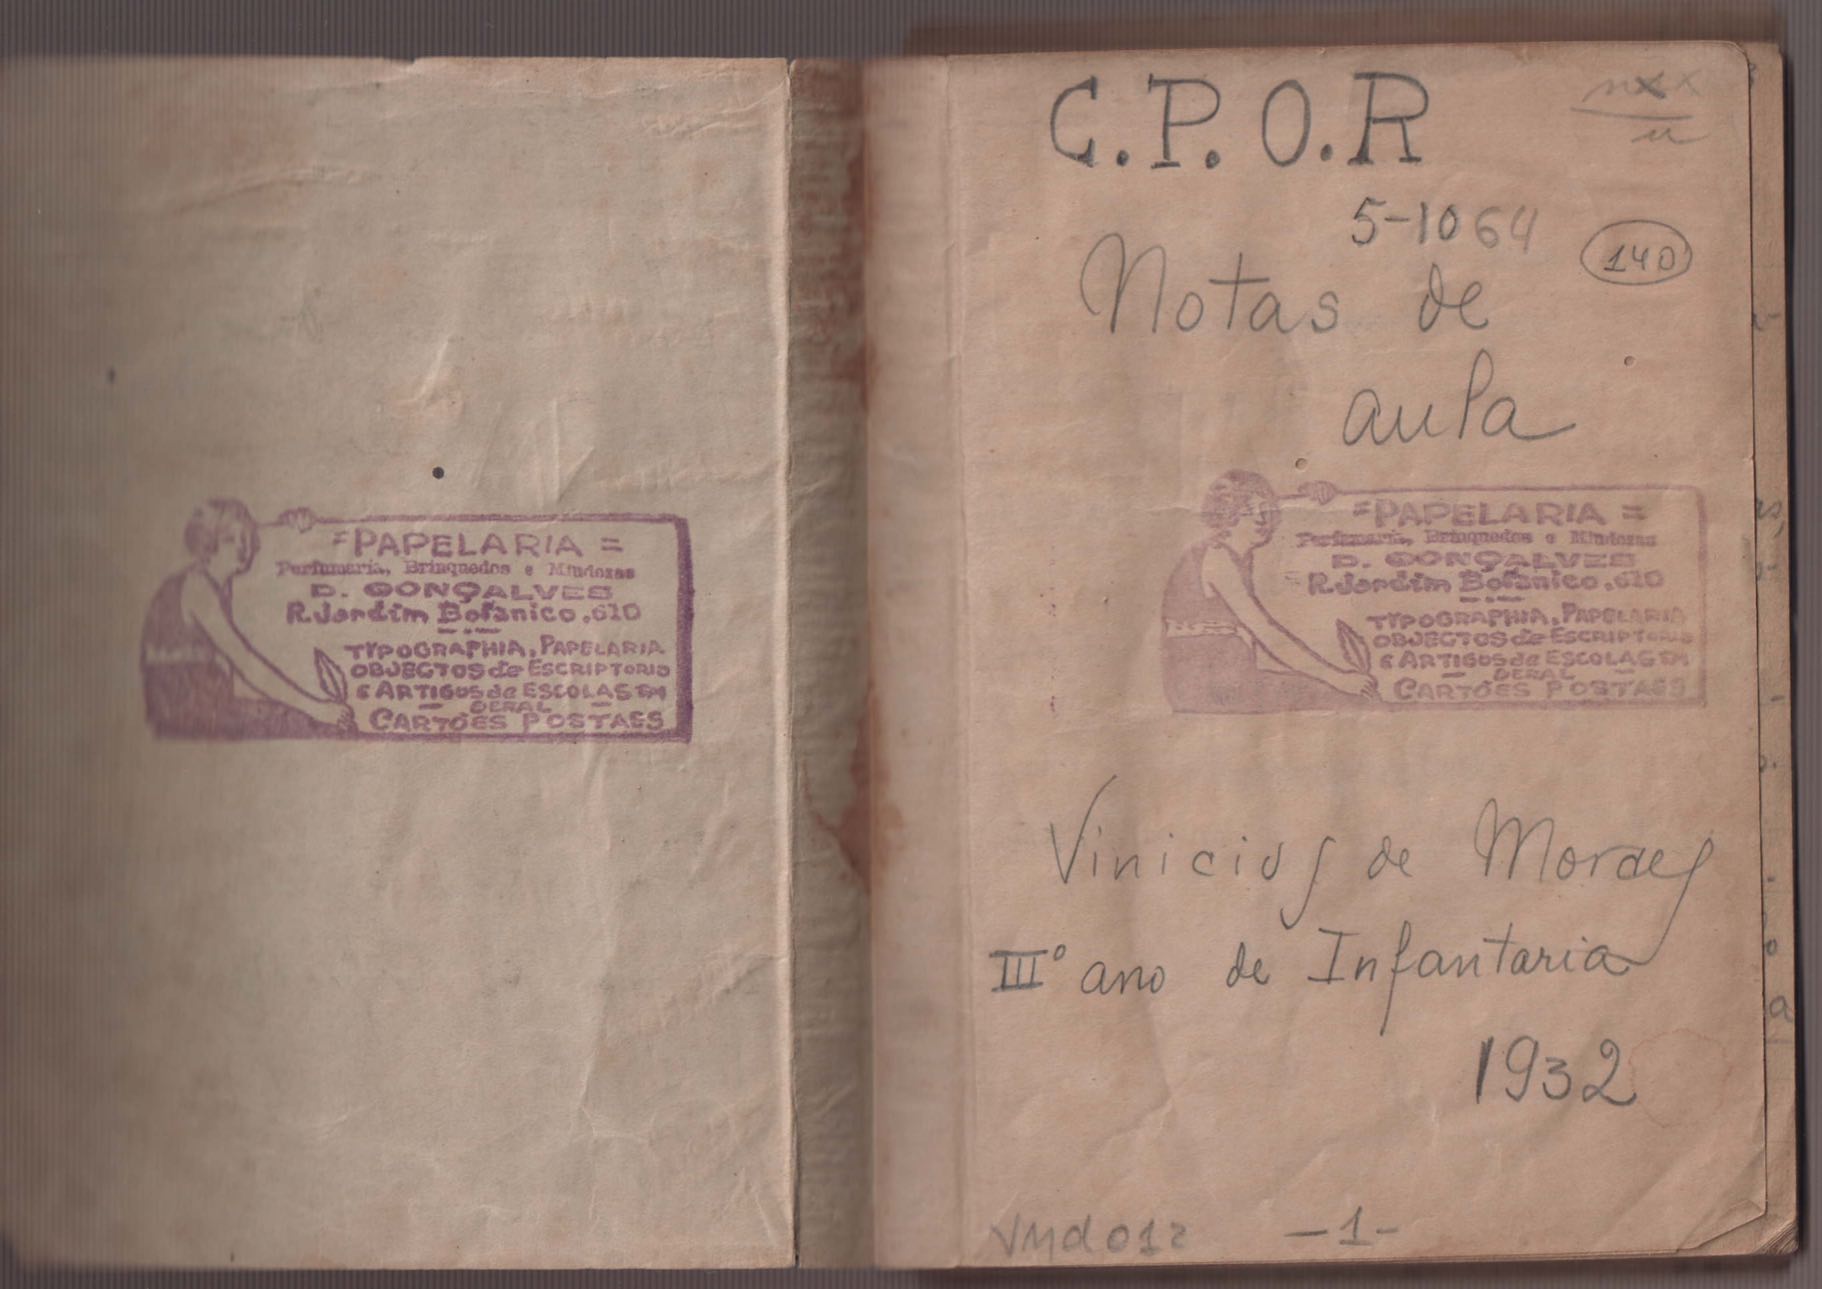 =PAPELARIA=
Perfumaria, Brinquedos e Miudezas
D. GONÇALVES
R. Jardim Botanico, 610
TYPOGRAPHIA, PAPELARIA
OBJECTOS de ESCRIPTORIO
e ARTIGOS de ESCOLAS EM
GERAL
CARTÕES POSTAES
C.P.O.R
5-1064
140
Notas de
aula
=PAPELARIA=
Perfumaria, Brinquedos e Miudezas
D. GONÇALVES
R. Jardim Botanico, 610
TYPOGRAPHIA, PAPELARIA
OBJECTOS de ESCRIPTORIO
e ARTIGOS de ESCOLAS EM
GERAL
CARTÕES POSTAES
Vinicius de Moraes
IIIº ano de Infantaria
1932
-1-